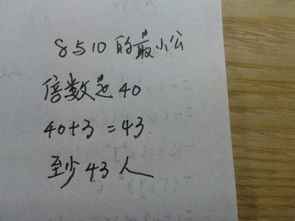 8与10的最小公
倍数是40
40+3=43
至少43人